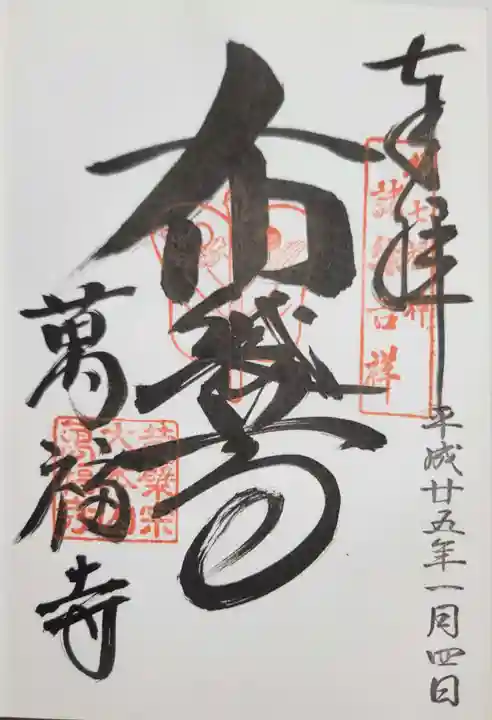 奉拝
平成廿五年一月四日
吉祥
布袋尊
黄檗宗
大本山
萬福寺
萬福寺